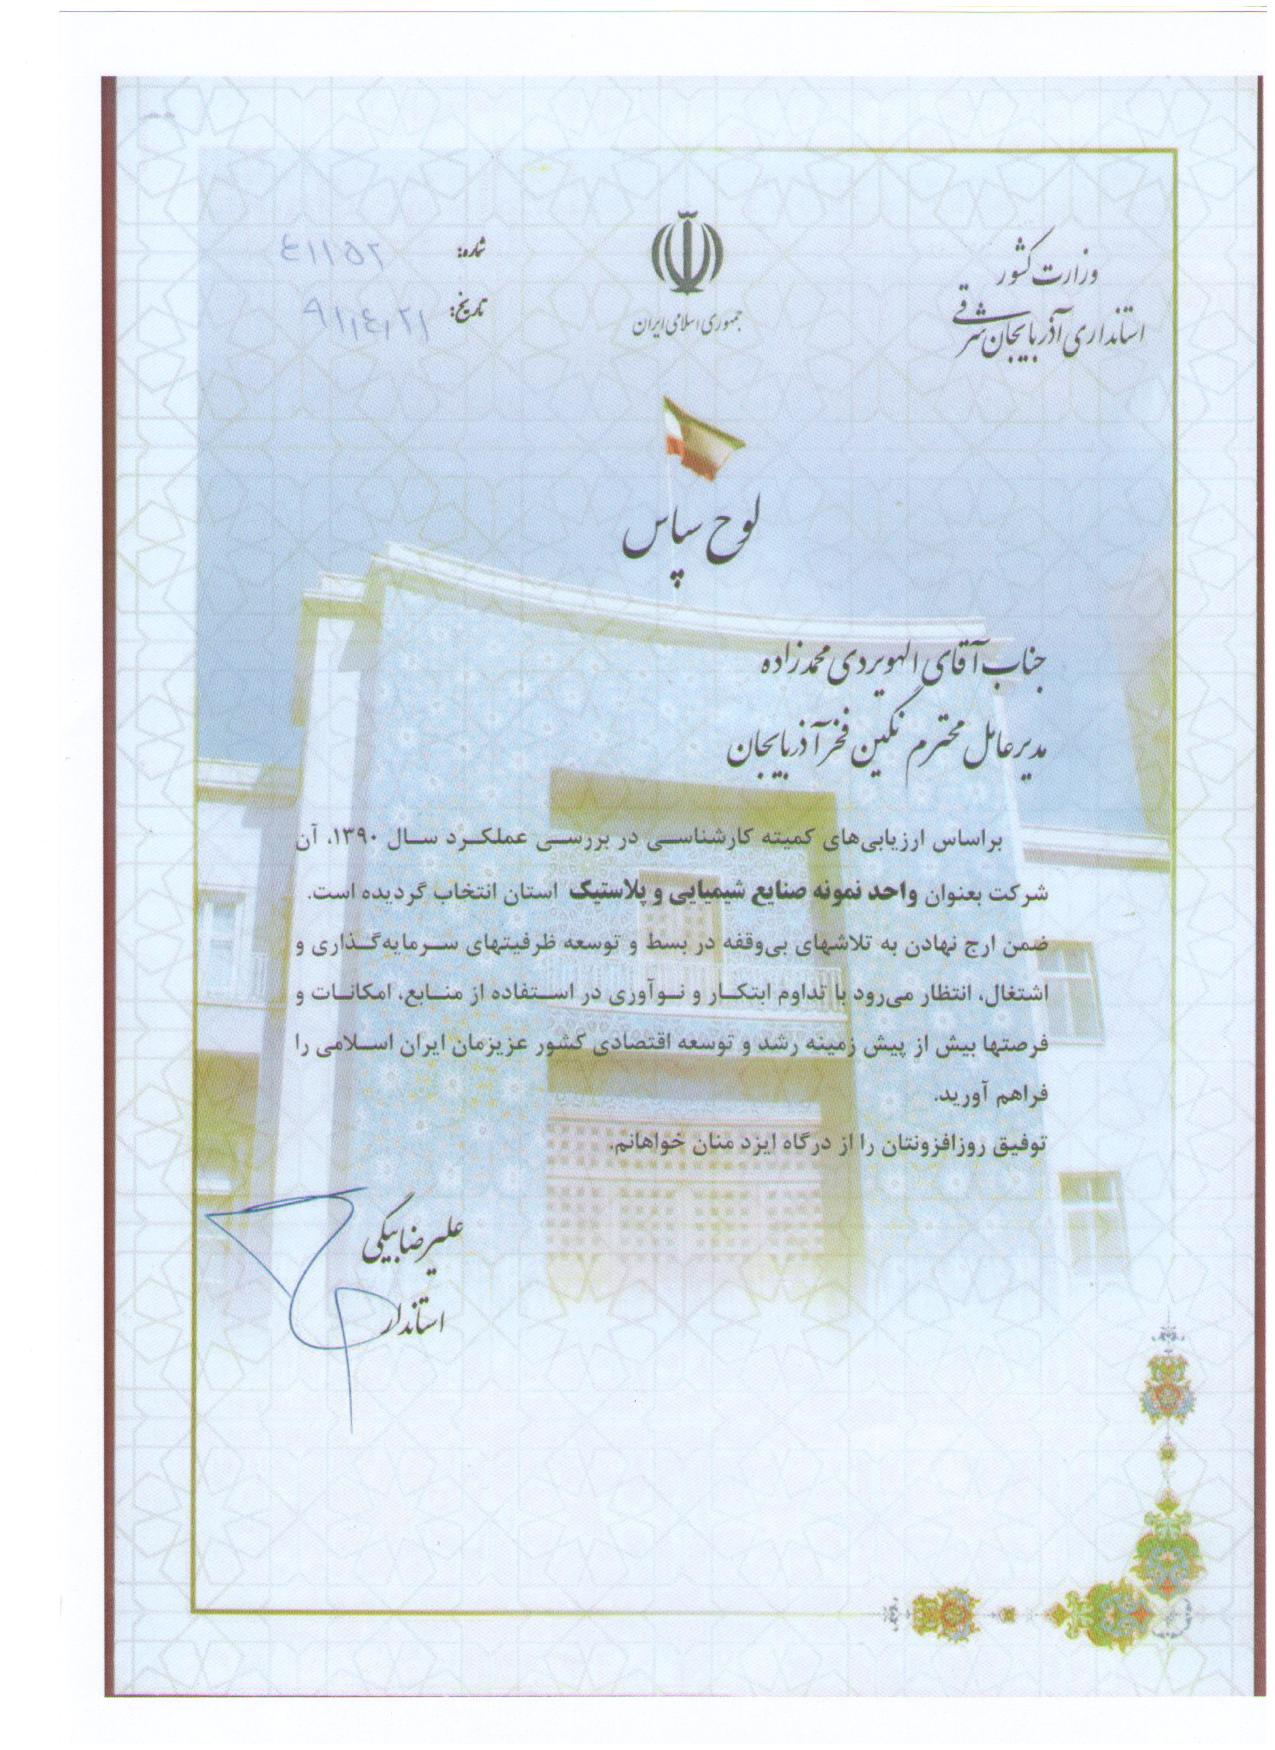 وزارت کشور
استانداری آذربایجان شرقی
جمهوری اسلامی ایران
شماره: ٤١١٥٢
تاریخ: ٩١,٤,٢١
لوح سپاس
جناب آقای الهویردی محمدزاده
مدیرعامل محترم نگین فخر آذربایجان
براساس ارزیابی‌های کمیته کارشناسی در بررسی عملکرد سال ۱۳۹۰، آن
شرکت بعنوان واحد نمونه صنایع شیمیایی و پلاستیک استان انتخاب گردیده است.
ضمن ارج نهادن به تلاشهای بی‌وقفه در بسط و توسعه ظرفیتهای سرمایه‌گذاری و
اشتغال، انتظار می‌رود با تداوم ابتکار و نوآوری در استفاده از منابع، امکانات و
فرصتها بیش از پیش زمینه رشد و توسعه اقتصادی کشور عزیزمان ایران اسلامی را
فراهم آورید.
توفیق روزافزونتان را از درگاه ایزد منان خواهانم.
علیرضا بیگی
استاندار